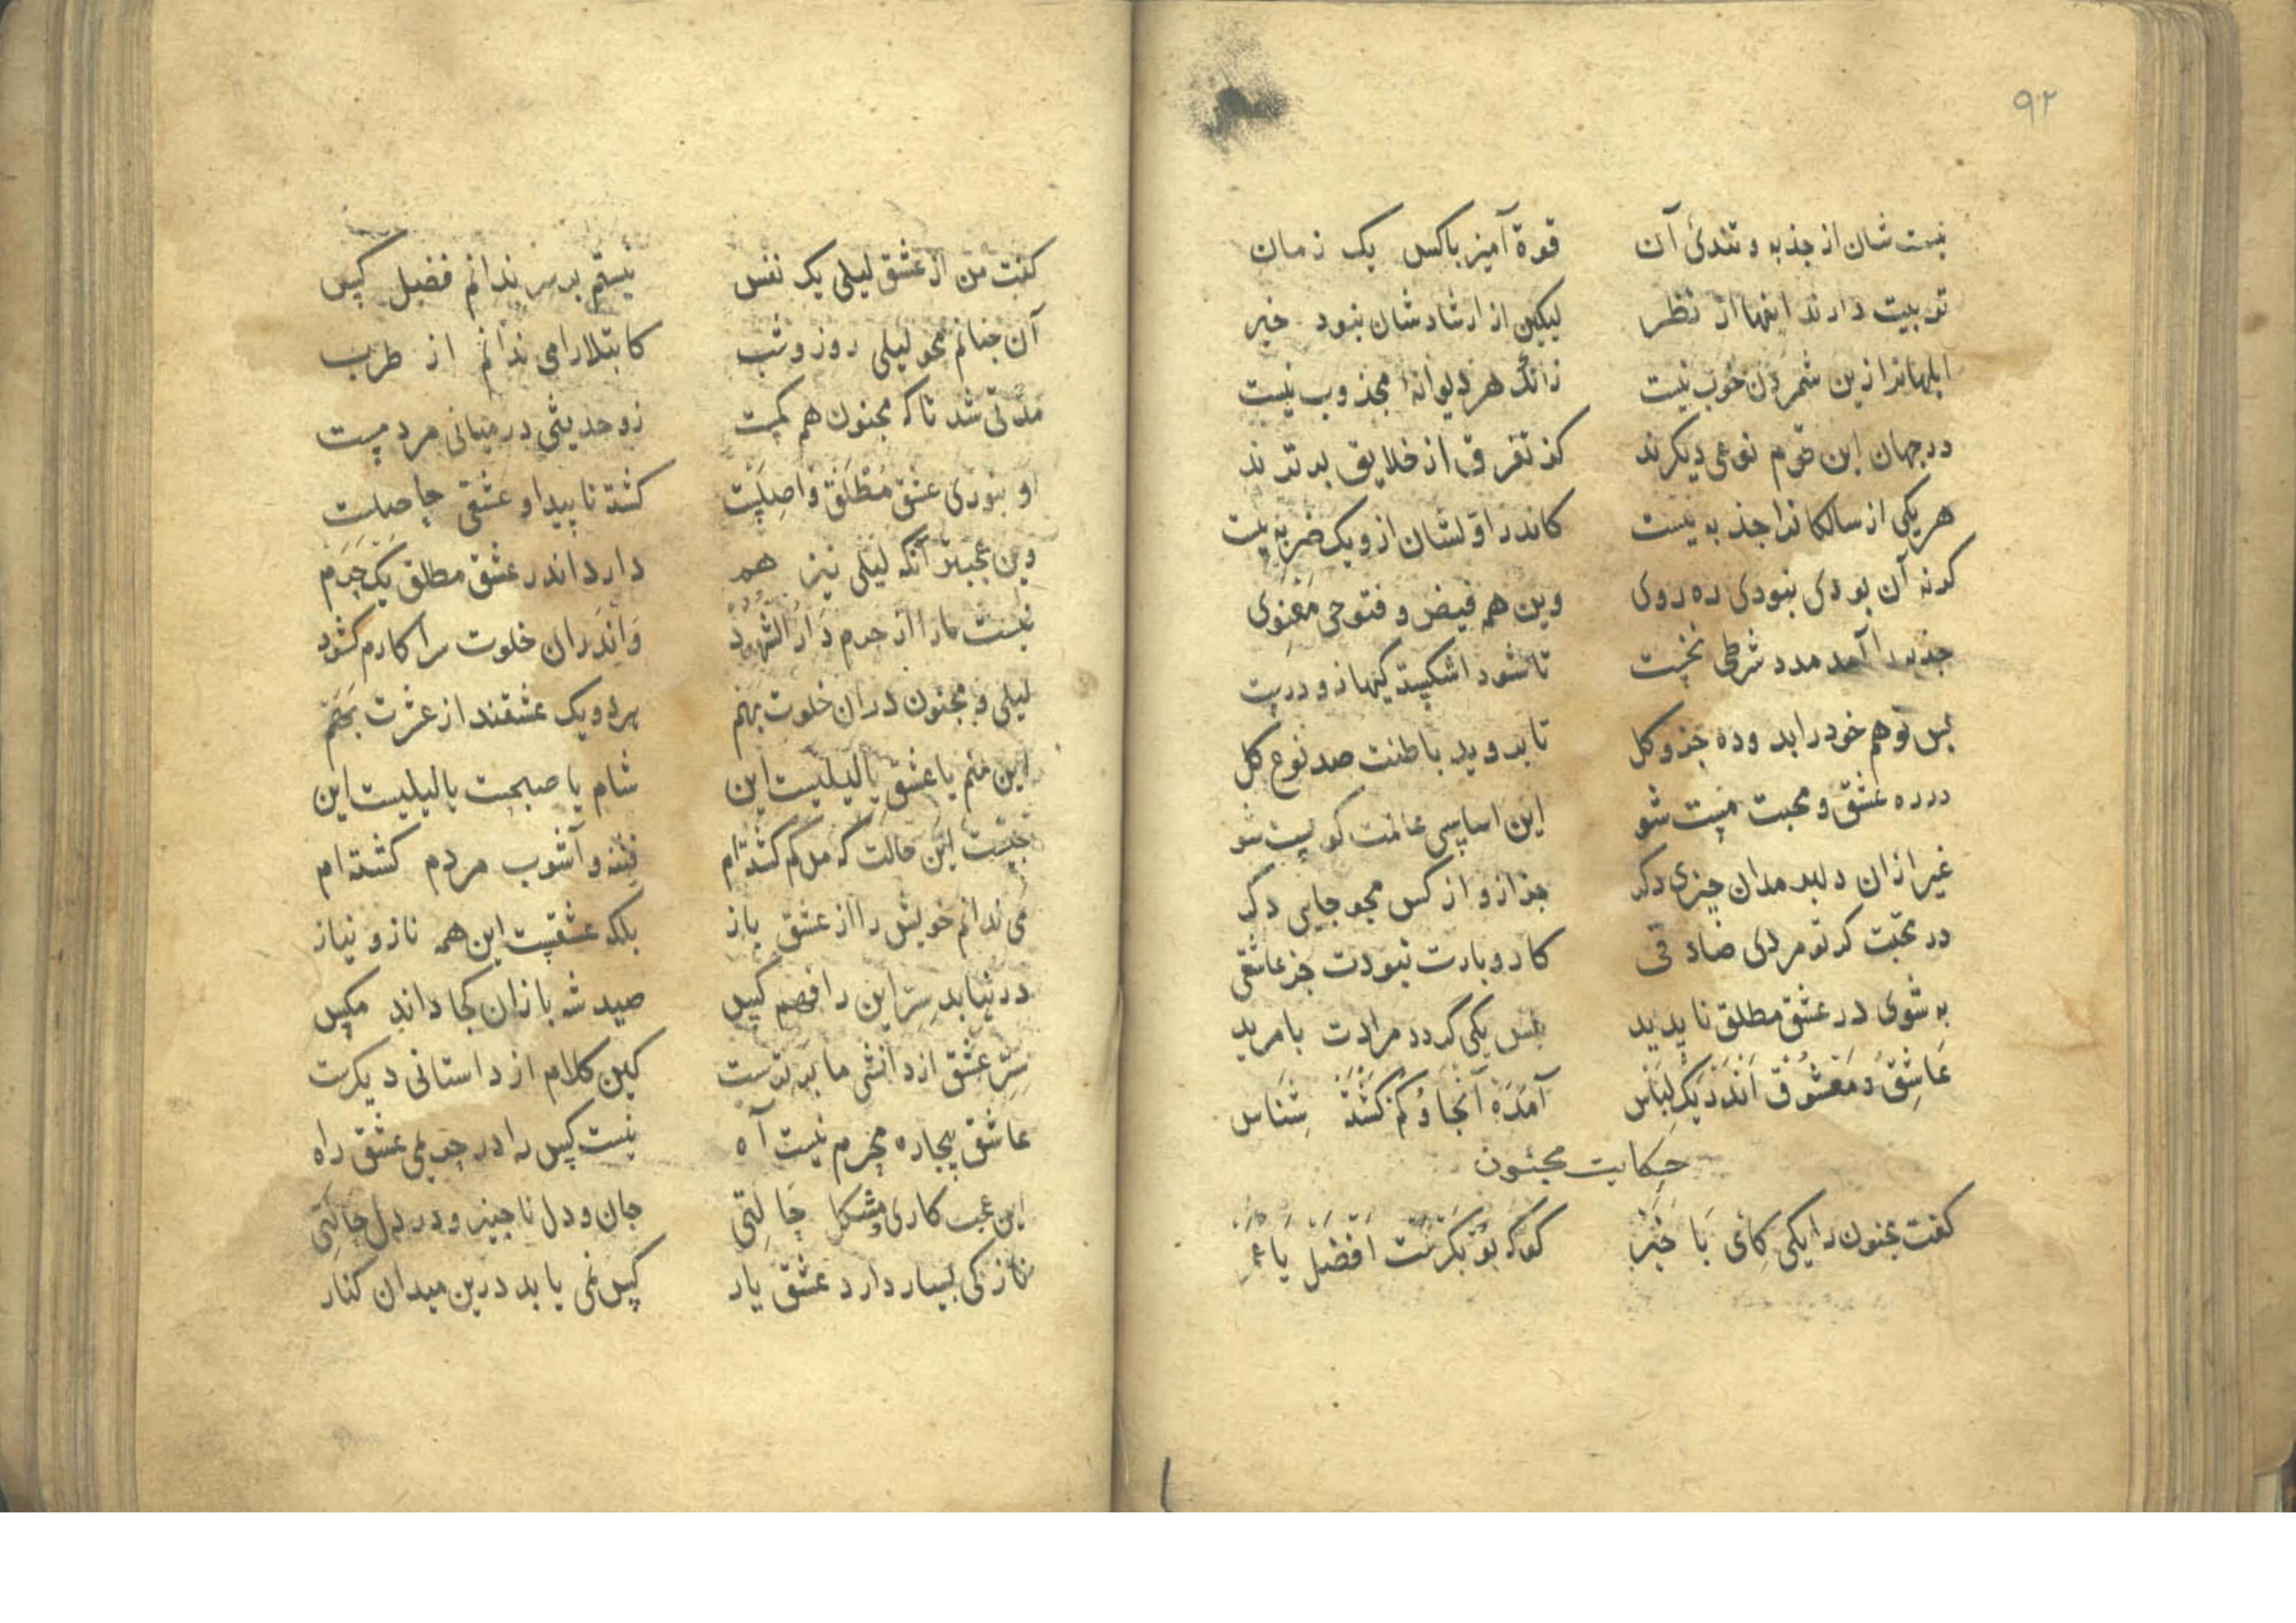 ٩٢
نیست شان از جذبه و تندئ آن قوة آمیز باکس یک زمان
تربیت دارند اینها از نظر لیکن از ارشاد شان نبود خبر
ابلهانرا زین شمردن خوب نیست زانک هر دیوانهٔ مجذوب نیست
در جهان این قوم نوعی دیکرند کز تفرق از خلایق برترند
هر یکی از سالکانرا جذبه یست کاندر اولشان ازو یک ضربه یست
کرنه آن بودی نبودی ره روی وین هم فیض و فتوحی معنوی
جذبه را آمد مدد شرطی نخست تا شود اشکست کیها زو درست
پس تو هم خود را بدو ده جزو کل تا بروید باطنت صد نوع کل
در ره عشق و محبت مست شو این اساسی عالمت کو پست شو
غیر ازان دلبر مدان چیزی دکر جز ازو از کس مجو جایی دکر
در محبت کر تو مردی صادقی کار و بارت نبودت جز عاشقی
به شوی در عشق مطلق ناپدید پس یکی گردد مرادت با مرید
عَاشِق وَ مَعشُوق اَندَر یَک لِبَاس آمَدَهْ آنجا وُ کم کَشْتَهْ شِنَاس
حکایت مجنون
کفت مجنون را یکی کِای بَا خَبَر کوکه بُوبَکرَست اَفضَل یَا عُمَر
کفت من از عشق لیلی یک نفس نیستم بر سر ندانم فضل کس
آن چنانم محو لیلی روز و شب کابتلا را می ندانم از طرب
مدتی شد تا که مجنون هم کمست زو حدیثی در میانی مردمست
او نبودی عشق مطلق واصلست کشته ناپیدا و عشقی حاصلست
وین عجبتر آنکه لیلی نیز هم دارد اندر عشق مطلق یک حرم
نیست ما را از حرم دار الشهود واندران خلوت سرا کارم کشود
لیلی و مجنون دران خلوت بهم هردو یک عشقند از عشرت بهم
این منم یا عشق یا لیلیست این شام یا صبحست یا لیلیست این
چیست این حالت که من کم کشته‌ام فتنه و آشوب مردم کشته‌ام
می ندانم خویش را از عشق باز بلکه عشقست این همه ناز و نیاز
در نیابد سِرّ این را فهم کس صید شه بازان کجا داند مکس
سِرِّ عشق از دانشی ما برترست کین کلام از داستانی دیکرست
عاشق بیچاره محرم نیست آه نیست کس را در حریمی عشق راه
این عجب کاری و مشکل حَالتی جان و دل ناچیز و در دل حالتی
نازکی بسیار دارد عشق یار کس نمی یابد درین میدان کنار